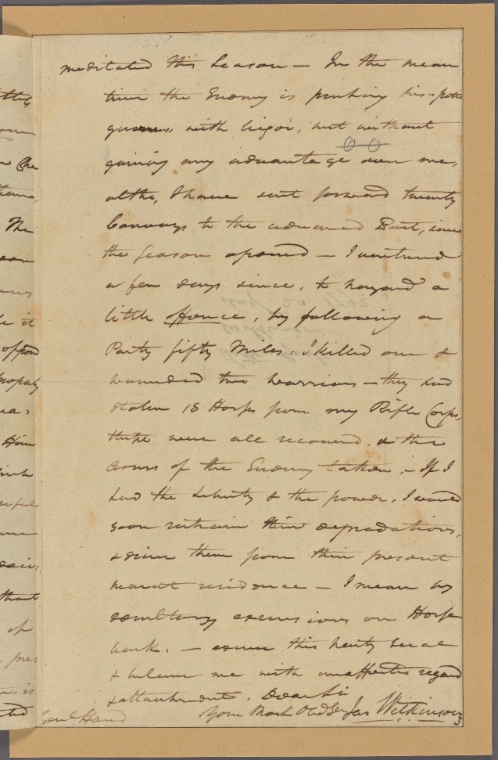 meditated this Season — In the mean
time the Enemy is pushing his
with vigor, but without
gaining any advantage over me,
altho, I have sent forward twenty
Convoys to the advanced Post, since
the Season opened — I ventured
a few days since, to hazard a
little offence, by following a
Party fifty Miles, I killed one &
wounded two warriors — they had
stolen 15 Horses from my Rifle Corps,
these were all recovered, & the
arms of the Enemy taken, — If I
had the liberty & the power, I would
soon restrain their depredations,
& drive them from their present
nearest residence — I mean by
desultory excursions on Horse
back. — excuse this hasty
& believe me with unaffected regard
& attachment. Dear Sir
Genl Hand Your Most Obd Ser Jas Wilkinson